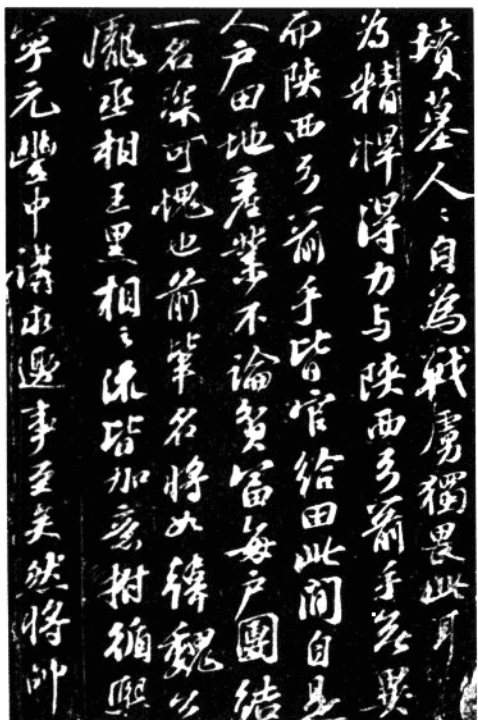 墳墓人〻自為戰虜獨畏此耳
為精悍得力与陝西弓箭手無異
而陝西弓箭手皆官給田此間自是
人户田地產業不論貧富每户團結
一名深可愧也前輩名將如韓魏公
龐丞相王相〻流皆加意拊循熙
寧元豐中講求邊事至矣然將帥